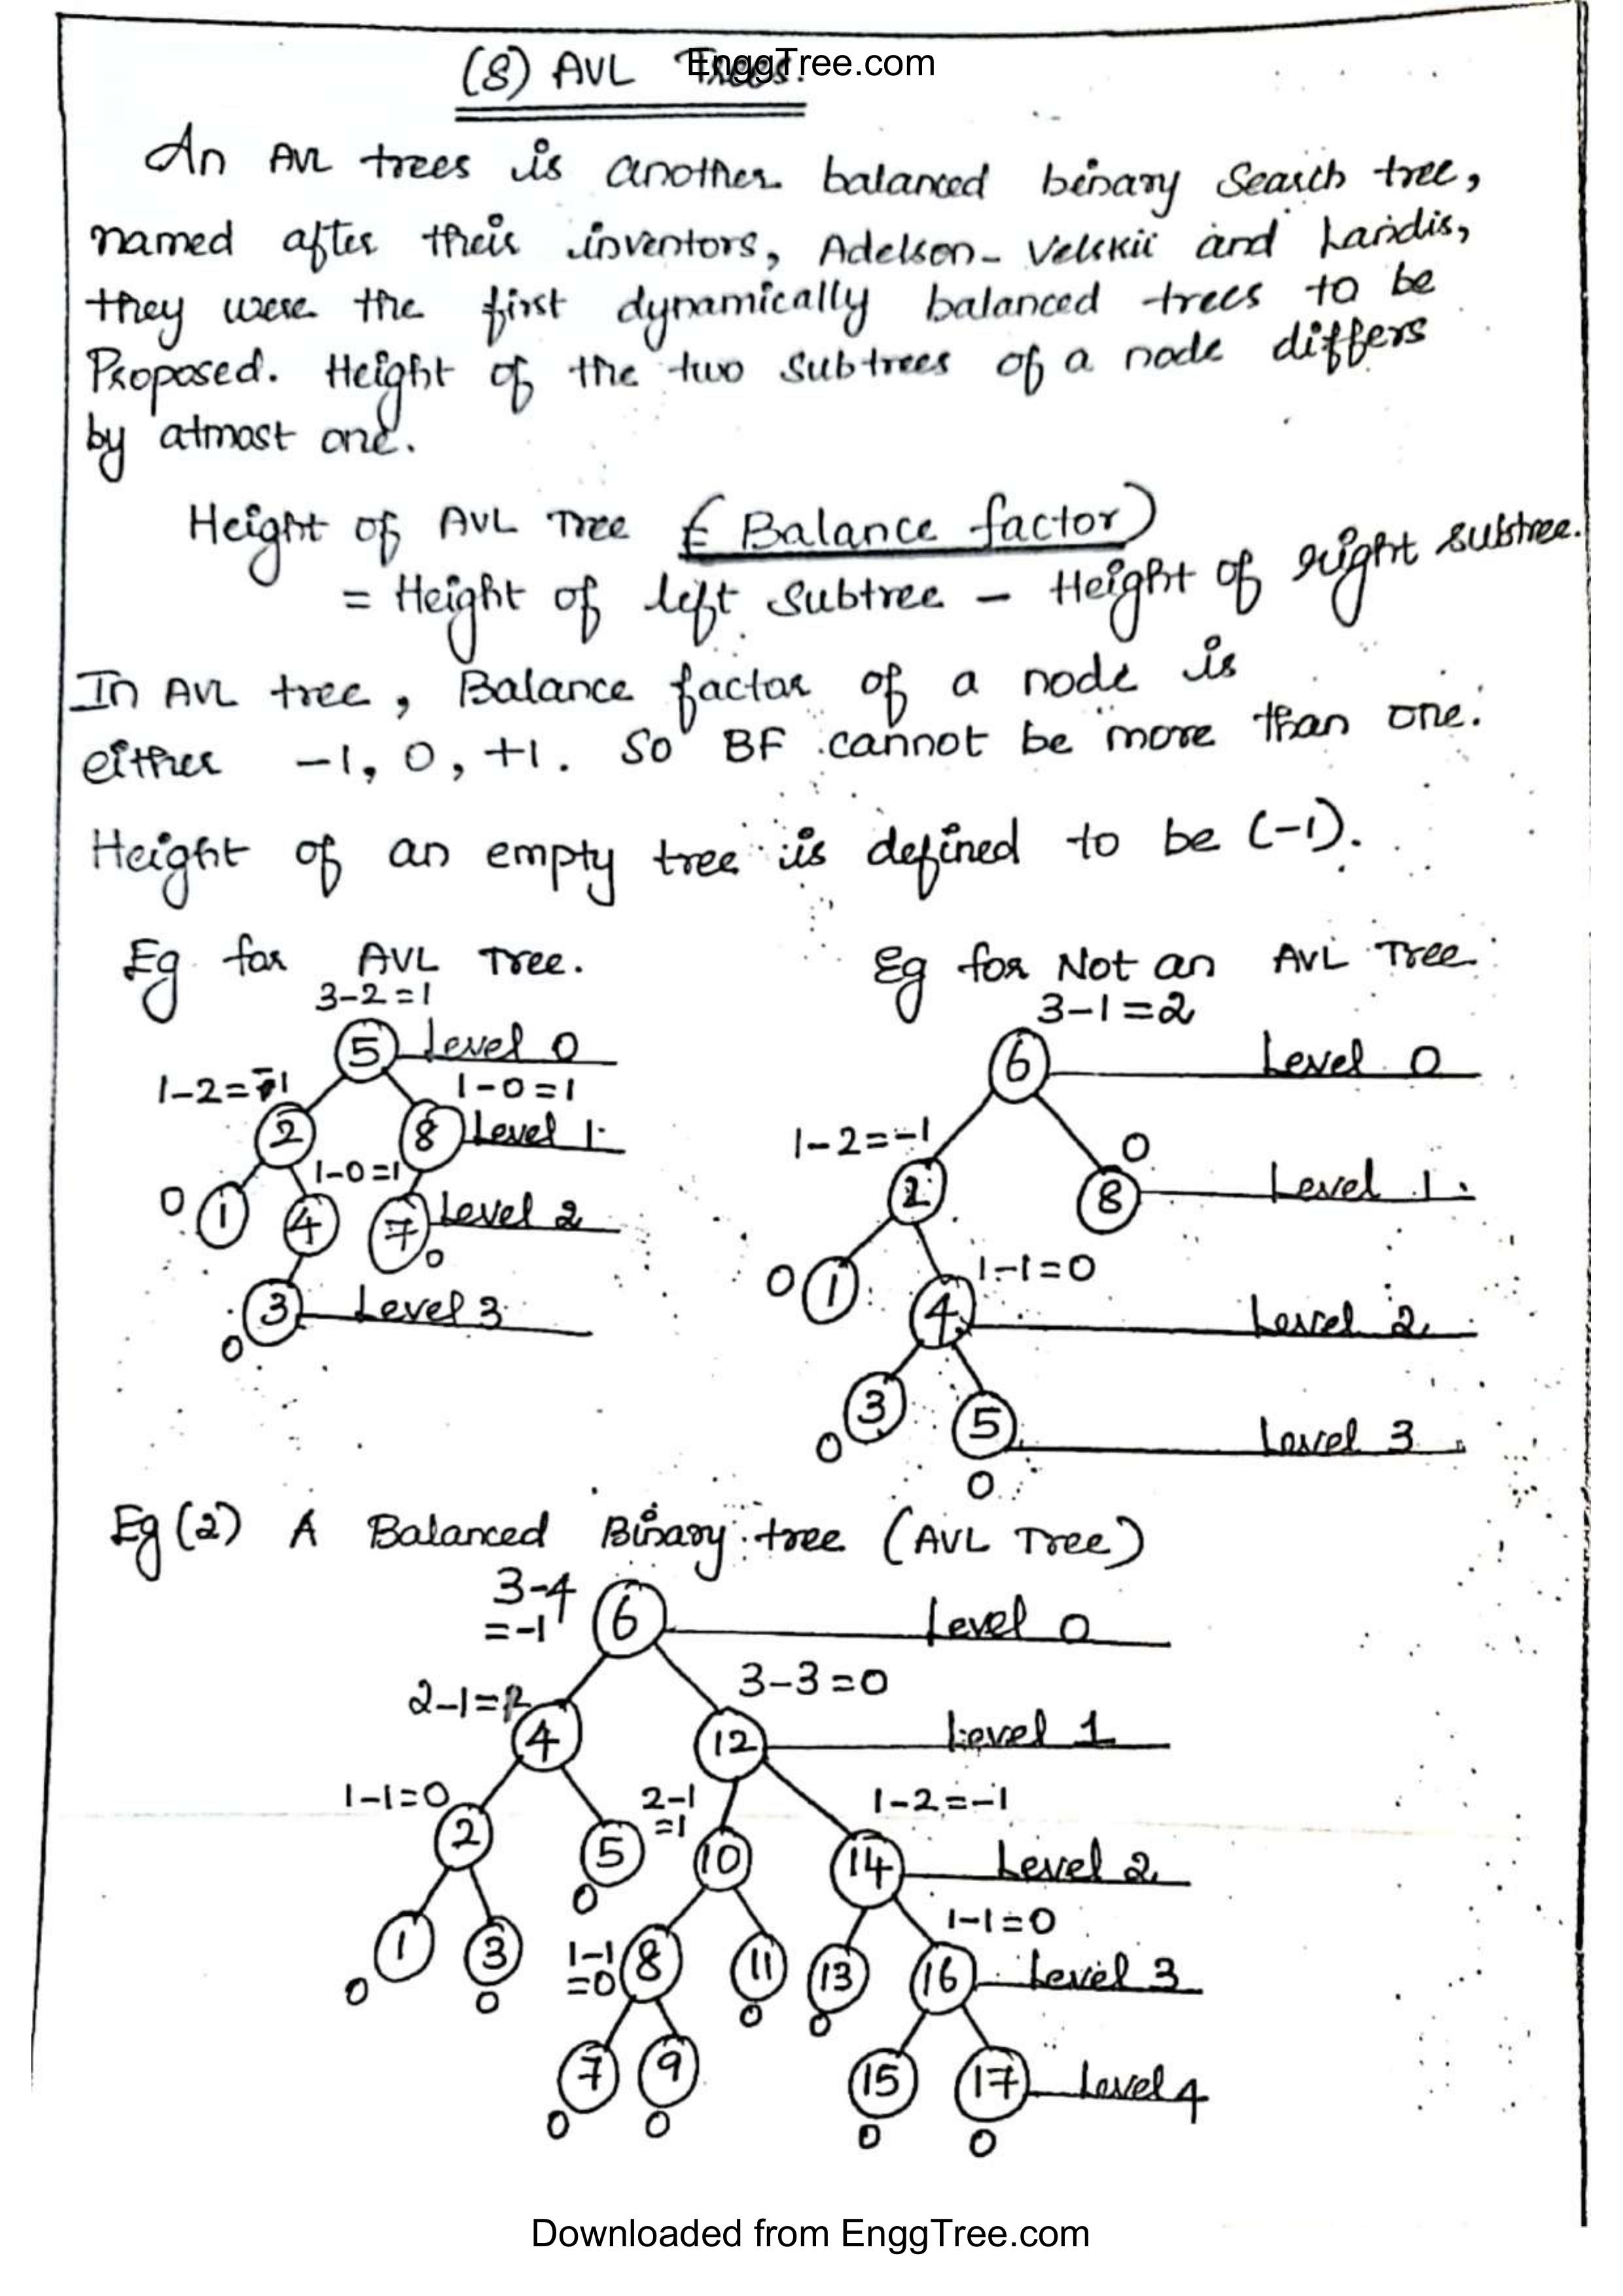 EnggTree.com
(8) AVL Trees.
An AVL trees is another balanced binary Search tree,
named after their inventors, Adelson-Velskii and Landis,
they were the first dynamically balanced trees to be
Proposed. Height of the two subtrees of a node differs
by atmost one.
Height of AVL Tree ( Balance factor)
= Height of left subtree - Height of right subtree.
In AVL tree, Balance factor of a node is
either -1, 0, +1. So BF cannot be more than one.
Height of an empty tree is defined to be (-1).
Eg for AVL Tree.
3-2=1
5 Level 0
1-2=-1 1-0=1
2 8 Level 1
1-0=1
0 1 4 7 0 Level 2
3 Level 3
0
Eg for Not an AVL Tree
3-1=2
6 Level 0
1-2=-1 0
2 8 Level 1
1-1=0
0 1 4 Level 2
3 5 Level 3
0 0
Eg (2) A Balanced Binary tree (AVL Tree)
3-4
=-1 6 Level 0
2-1= 3-3=0
4 12 Level 1
1-1=0 2-1
=1 1-2=-1
2 5 10 14 Level 2
0 1-1=0
1 3 1-1
=0 8 11 13 16 Level 3
0 0 0 0
7 9 15 17 Level 4
0 0 0 0
Downloaded from EnggTree.com